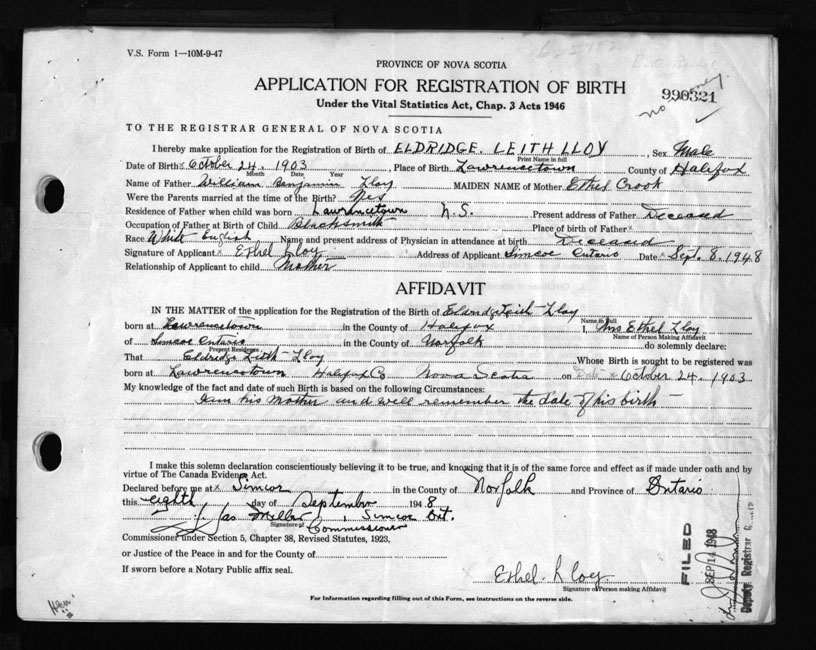 V.S. Form 1—10M-9-47
PROVINCE OF NOVA SCOTIA
APPLICATION FOR REGISTRATION OF BIRTH
990321
no
Under the Vital Statistics Act, Chap. 3 Acts 1946
TO THE REGISTRAR GENERAL OF NOVA SCOTIA
I hereby make application for the Registration of Birth of ELDRIDGE. LEITH LLOY, Sex Male
Print Name in full
Date of Birth x October 24. 1903, Place of Birth Lawrencetown County of Halifax
Month Date Year
Name of Father William Benjamin Lloy MAIDEN NAME of Mother Ethel Crook
Were the Parents married at the time of the Birth? Yes
Residence of Father when child was born Lawrencetown N.S. Present address of Father Deceased
Occupation of Father at Birth of Child Blacksmith Place of birth of Father x
Race White English Name and present address of Physician in attendance at birth Deceased
Signature of Applicant x Ethel Lloy Address of Applicant Simcoe Ontario Date x Sept. 8. 1948
Relationship of Applicant to child Mother
AFFIDAVIT
IN THE MATTER of the application for the Registration of Birth of Eldridge Leith Lloy
Name in full
born at Lawrencetown in the County of Halifox I, Mrs Ethel Lloy
Name of Person Making Affidavit
of Simcoe Ontario in the County of Norfolk do solemnly declare:
Present Residence
That Eldridge Leith Lloy Whose Birth is sought to be registered was
born at Lawrencetown Halifax Co Nova Scotia on Date x October 24. 1903
My knowledge of the fact and date of such Birth is based on the following Circumstances:
I am his Mother and well remember the date of his birth —
I make this solemn declaration conscientiously believing it to be true, and knowing that it is of the same force and effect as if made under oath and by
virtue of The Canada Evidence Act.
Declared before me at x Simcoe in the County of Norfolk and Province of Ontario
this eighth day of September 1948
Jas Miller, Simcoe Ont.
Signature of Commissioner
Commissioner under Section 5, Chapter 38, Revised Statutes, 1923,
or Justice of the Peace in and for the County of
If sworn before a Notary Public affix seal.
Ethel. Lloy.
Signature of Person making Affidavit
For Information regarding filling out of this Form, see instructions on the reverse side.
FILED
SEP 14 1948
Deputy Registrar